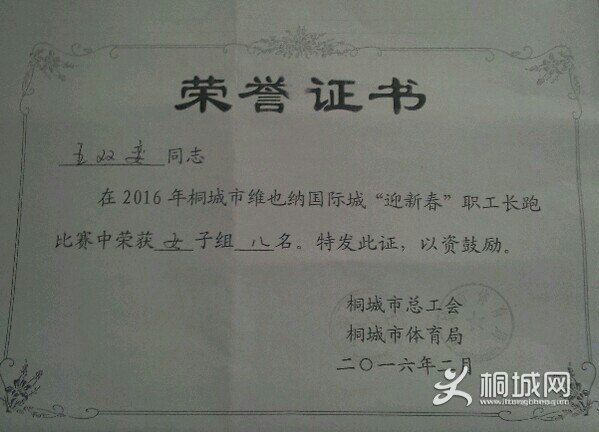 荣誉证书
王双妻 同志
在2016年桐城市维也纳国际城“迎新春”职工长跑
比赛中荣获 女 子组 八 名。特发此证，以资鼓励。
桐城市总工会
桐城市体育局
二〇一六年二月
桐城网